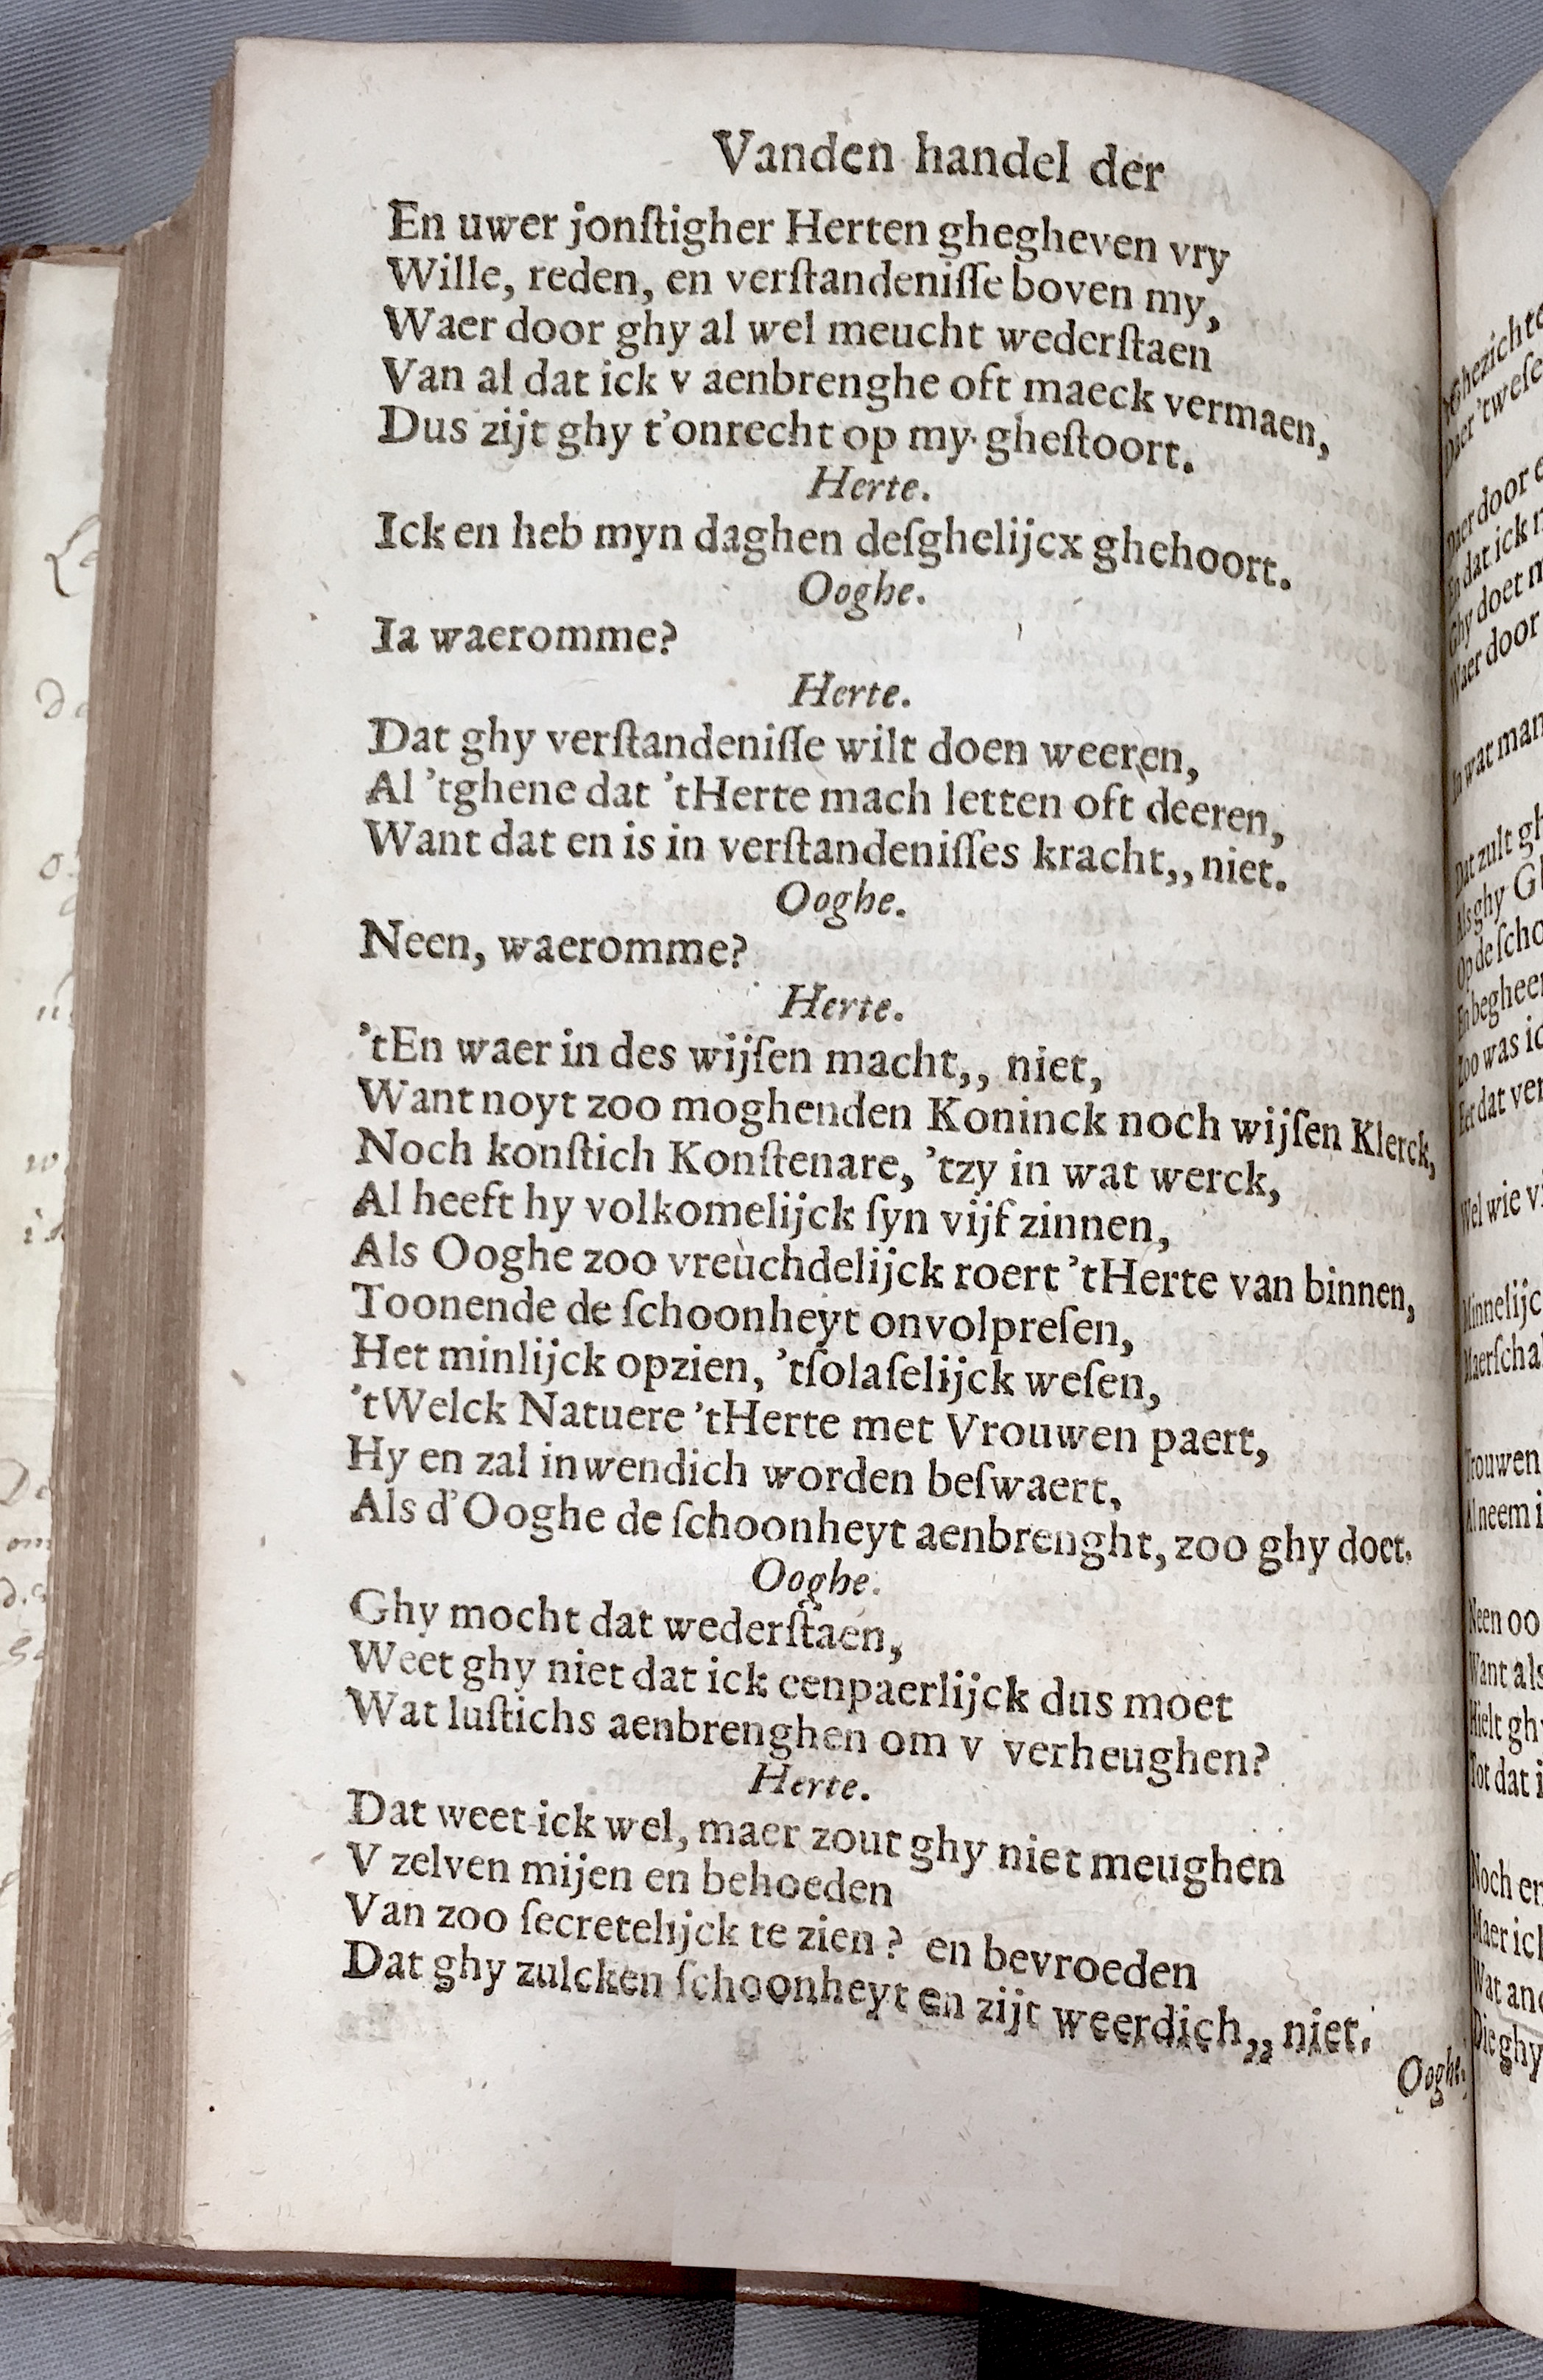 Vanden handel der
En uwer jonſtigher Herten ghegheven vry
Wille, reden, en verſtandeniſſe boven my,
Waer door ghy al wel meucht wederſtaen
Van al dat ick v aenbrenghe oft maeck vermaen,
Dus zijt ghy t'onrecht op my gheſtoort.
Herte.
Ick en heb myn daghen deſghelijcx ghehoort.
Ooghe.
Ia waeromme?
Herte.
Dat ghy verſtandeniſſe wilt doen weeren,
Al 'tghene dat 'tHerte mach letten oft deeren,
Want dat en is in verſtandeniſſes kracht,, niet.
Ooghe.
Neen, waeromme?
Herte.
'tEn waer in des wijſen macht,, niet,
Want noyt zoo moghenden Koninck noch wijſen Klerck,
Noch konſtich Konſtenare, 'tzy in wat werck,
Al heeft hy volkomelijck ſyn vijf zinnen,
Als Ooghe zoo vreuchdelijck roert 'tHerte van binnen,
Toonende de ſchoonheyt onvolpreſen,
Het minlijck opzien, 'tſolaſelijck weſen,
'tWelck Natuere 'tHerte met Vrouwen paert,
Hy en zal inwendich worden beſwaert,
Als d'Ooghe de ſchoonheyt aenbrenght, zoo ghy doet.
Ooghe.
Ghy mocht dat wederſtaen,
Weet ghy niet dat ick eenpaerlijck dus moet
Wat luſtichs aenbrenghen om v verheughen?
Herte.
Dat weet ick wel, maer zout ghy niet meughen
V zelven mijen en behoeden
Van zoo ſecretelijck te zien? en bevroeden
Dat ghy zulcken ſchoonheyt en zijt weerdich,, niet.
Ooghe.
Daer door
En dat ick
Ghy doet
Waer door
In wat
Dat zult
Als ghy
Zoo was
Eer dat
Wel wie
Trouwen
Al neem
Neen
Want als
Hielt
Tot dat
Noch
Maer
Wat
Die ghy